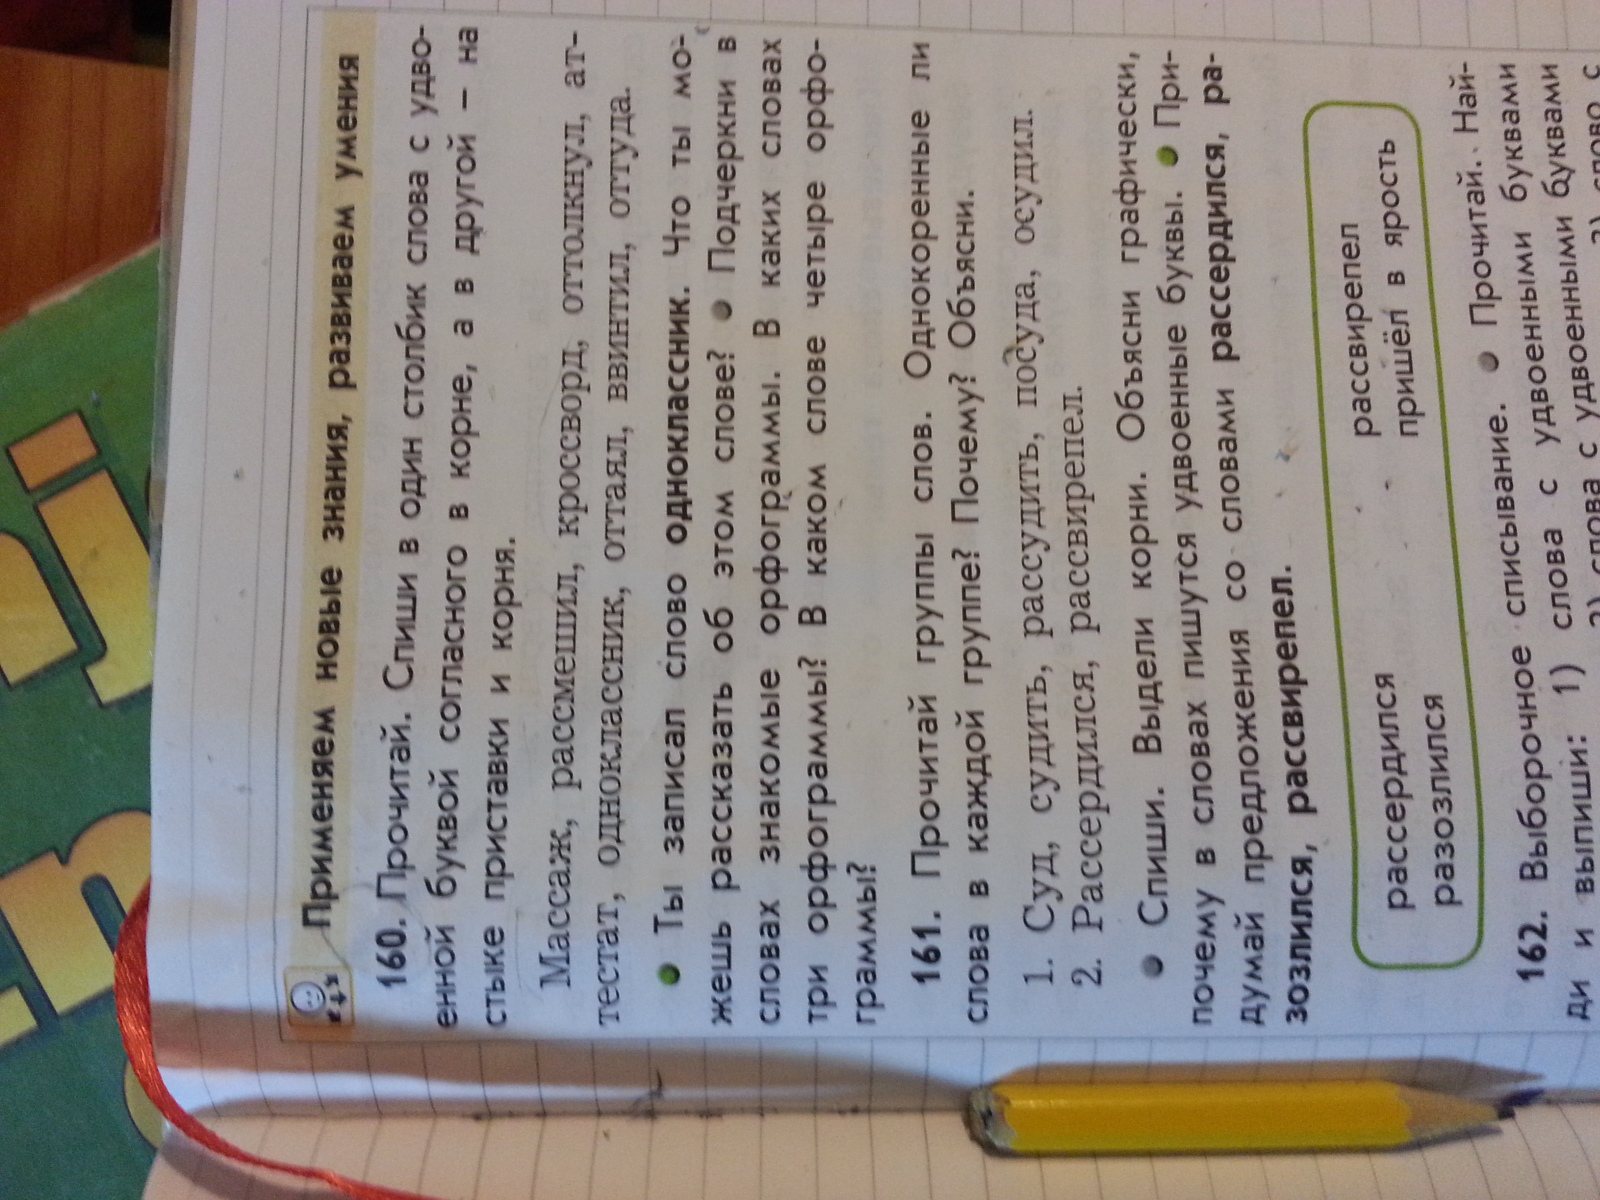 Применяем новые знания, развиваем умения
160. Прочитай. Спиши в один столбик слова с удво-
енной буквой согласного в корне, а в другой – на
стыке приставки и корня.
Массаж, рассмешил, кроссворд, оттолкнул, ат-
тестат, одноклассник, оттаял, ввинтил, оттуда.
● Ты записал слово одноклассник. Что ты мо-
жешь рассказать об этом слове? ● Подчеркни в
словах знакомые орфограммы. В каких словах
три орфограммы? В каком слове четыре орфо-
граммы?
161. Прочитай группы слов. Однокоренные ли
слова в каждой группе? Почему? Объясни.
1. Суд, судить, рассудить, посуда, осудил.
2. Рассердился, рассвирепел.
● Спиши. Выдели корни. Объясни графически,
почему в словах пишутся удвоенные буквы. ● При-
думай предложения со словами рассердился, ра-
зозлился, рассвирепел.
рассердился рассвирепел
разозлился пришёл в ярость
162. Выборочное списывание. ● Прочитай. Най-
ди и выпиши: 1) слова с удвоенными буквами
2) слова с удвоенными буквами
3) слово с